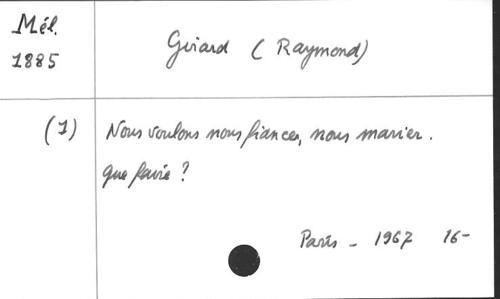 Mél.
1885
Girard ( Raymond)
(1) Nous voulons nous fiancer, nous marier.
que faire ?
Paris - 1967 16-